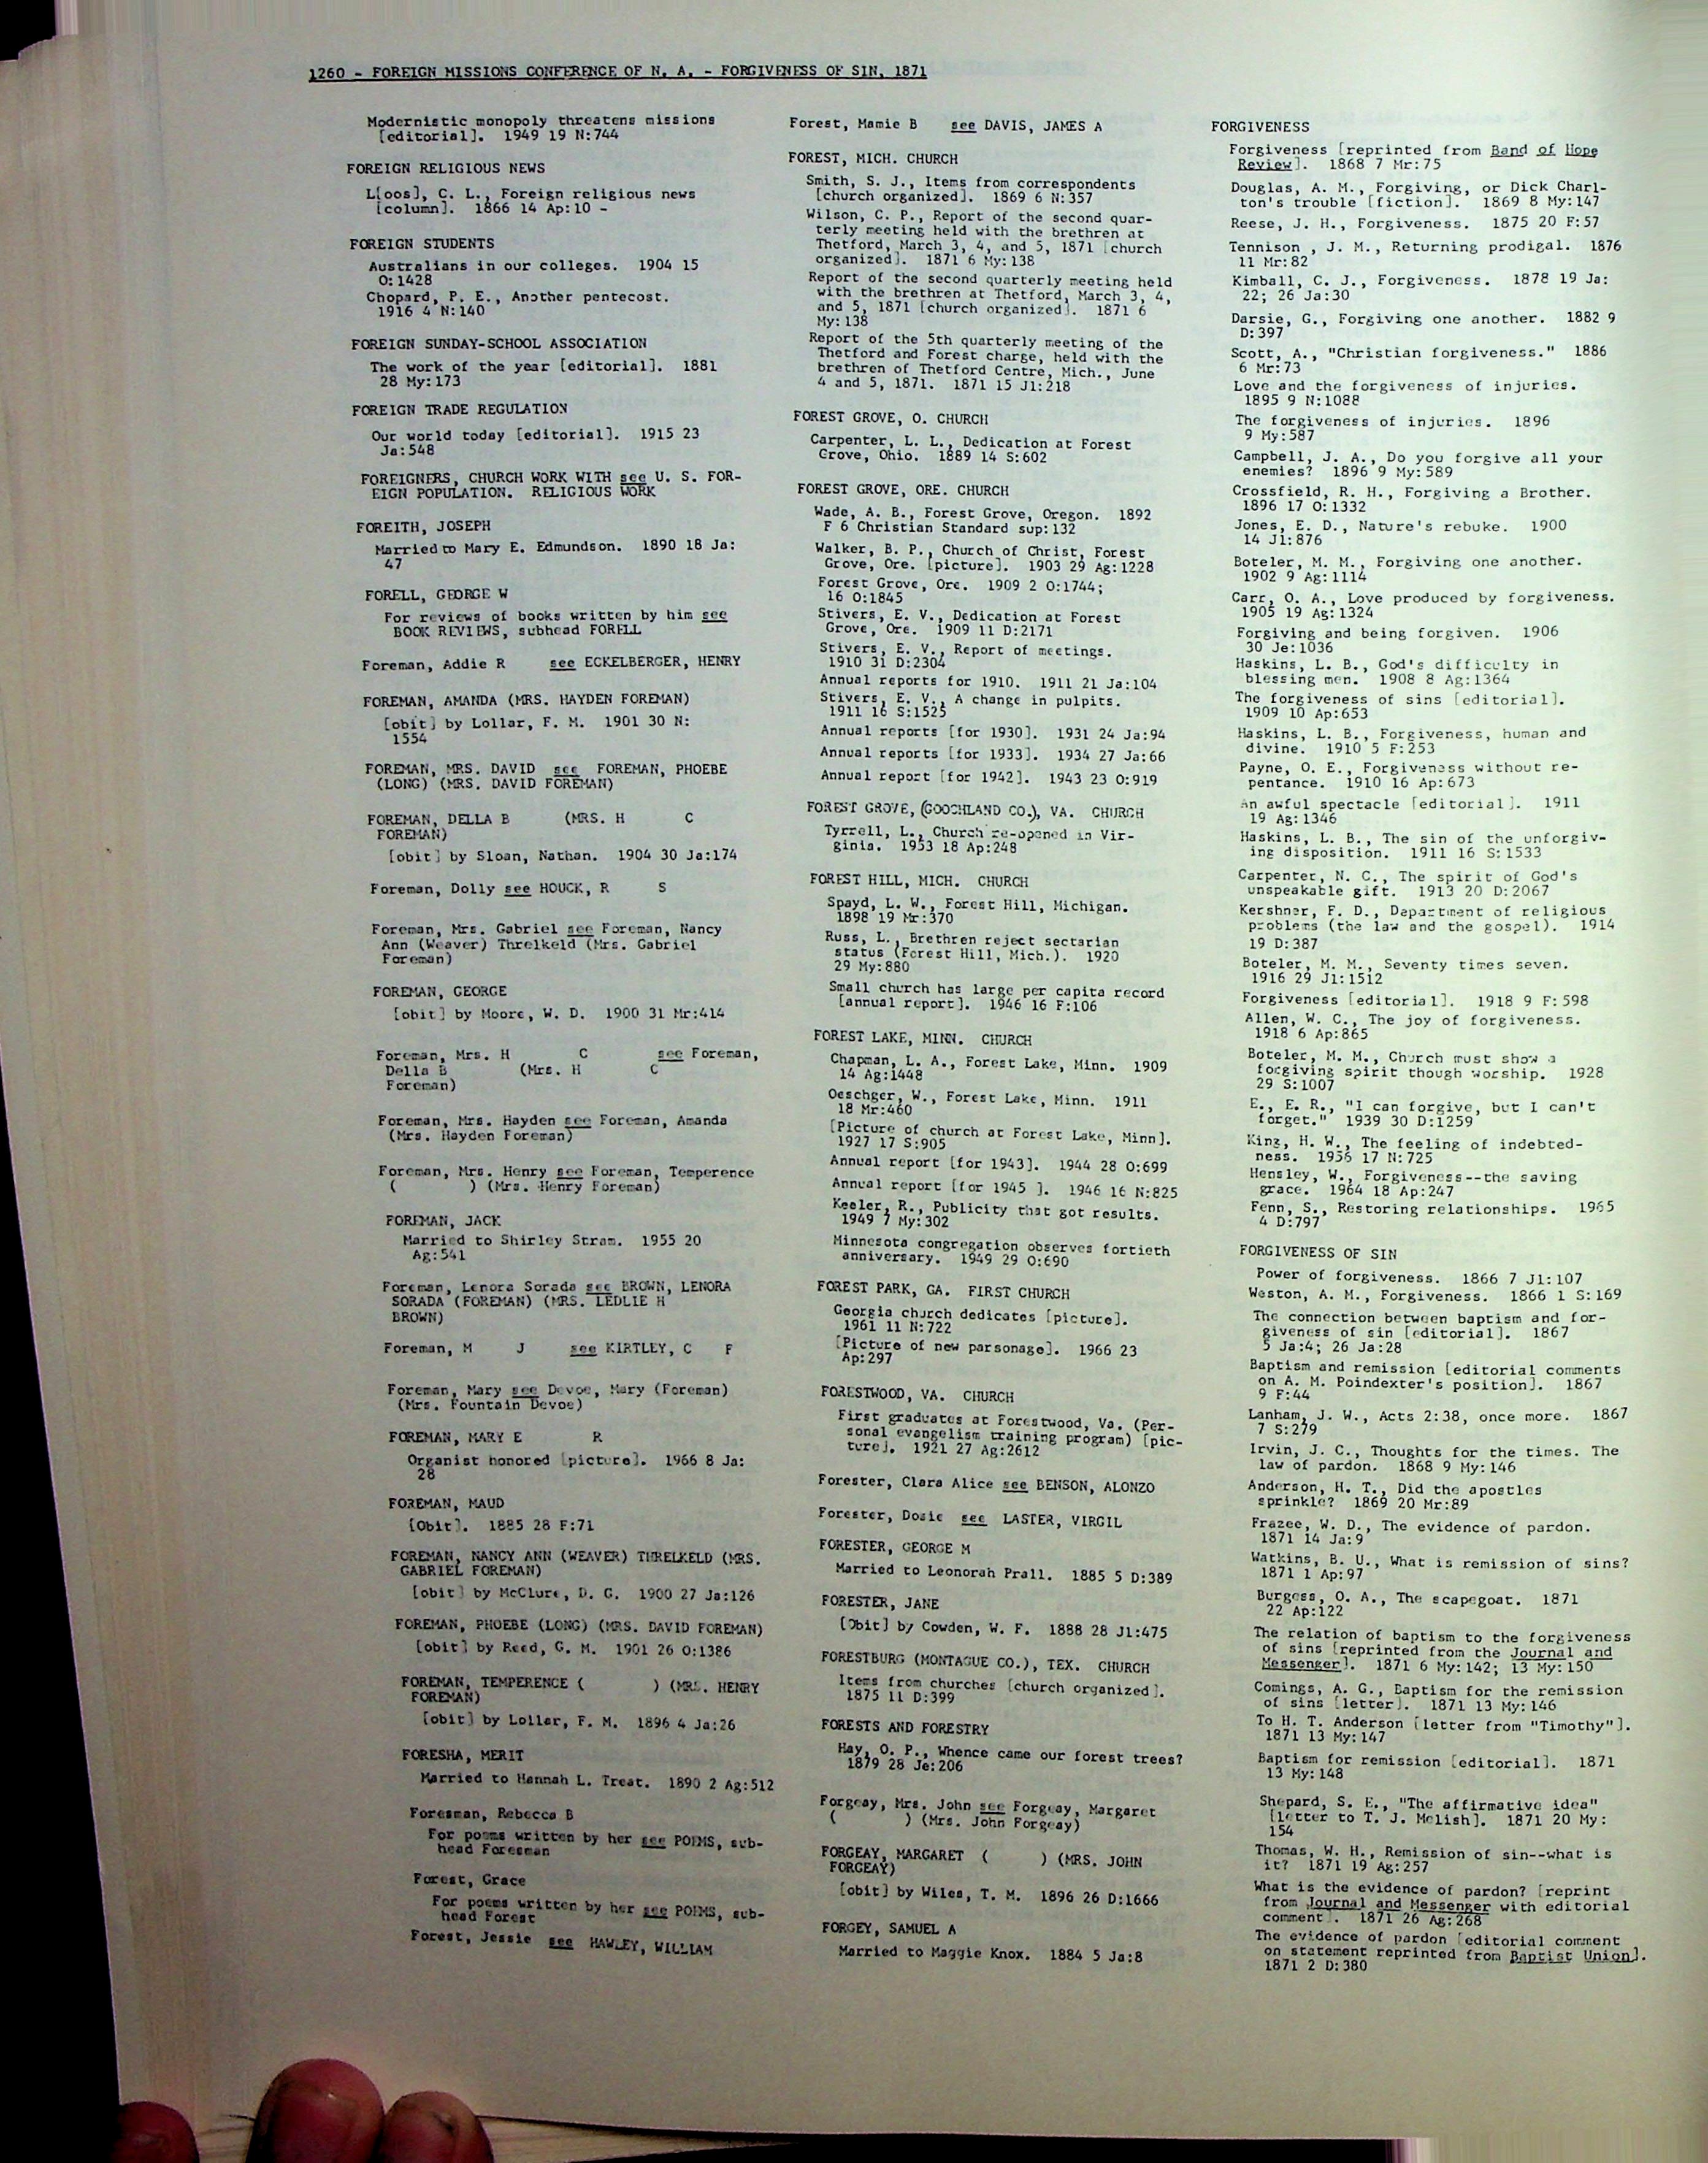 1260 - FOREIGN MISSIONS CONFERENCE OF N. A. - FORGIVENESS OF SIN, 1871
Modernistic monopoly threatens missions
[editorial]. 1949 19 N:744
FOREIGN RELIGIOUS NEWS
L[oos], C. L., Foreign religious news
[column]. 1866 14 Ap:10 -
FOREIGN STUDENTS
Australians in our colleges. 1904 15
O:1428
Chopard, P. E., Another pentecost.
1916 4 N:140
FOREIGN SUNDAY-SCHOOL ASSOCIATION
The work of the year [editorial]. 1881
28 My:173
FOREIGN TRADE REGULATION
Our world today [editorial]. 1915 23
Ja:548
FOREIGNERS, CHURCH WORK WITH see U. S. FOR-
EIGN POPULATION. RELIGIOUS WORK
FOREITH, JOSEPH
Married to Mary E. Edmundson. 1890 18 Ja:
47
FORELL, GEORGE W
For reviews of books written by him see
BOOK REVIEWS, subhead FORELL
Foreman, Addie R see ECKELBERGER, HENRY
FOREMAN, AMANDA (MRS. HAYDEN FOREMAN)
[obit] by Lollar, F. M. 1901 30 N:
1554
FOREMAN, MRS. DAVID see FOREMAN, PHOEBE
(LONG) (MRS. DAVID FOREMAN)
FOREMAN, DELLA B (MRS. H C
FOREMAN)
[obit] by Sloan, Nathan. 1904 30 Ja:174
Foreman, Dolly see HOUCK, R S
Foreman, Mrs. Gabriel see Foreman, Nancy
Ann (Weaver) Threlkeld (Mrs. Gabriel
Foreman)
FOREMAN, GEORGE
[obit] by Moore, W. D. 1900 31 Mr:414
Foreman, Mrs. H C see Foreman,
Della B (Mrs. H C
Foreman)
Foreman, Mrs. Hayden see Foreman, Amanda
(Mrs. Hayden Foreman)
Foreman, Mrs. Henry see Foreman, Temperence
( ) (Mrs. Henry Foreman)
FOREMAN, JACK
Married to Shirley Stram. 1955 20
Ag:541
Foreman, Lenora Sorada see BROWN, LENORA
SORADA (FOREMAN) (MRS. LEDLIE H
BROWN)
Foreman, M J see KIRTLEY, C F
Foreman, Mary see Devoe, Mary (Foreman)
(Mrs. Fountain Devoe)
FOREMAN, MARY E R
Organist honored [picture]. 1966 8 Ja:
28
FOREMAN, MAUD
[Obit]. 1885 28 F:71
FOREMAN, NANCY ANN (WEAVER) THRELKELD (MRS.
GABRIEL FOREMAN)
[obit] by McClure, D. G. 1900 27 Ja:126
FOREMAN, PHOEBE (LONG) (MRS. DAVID FOREMAN)
[obit] by Reed, G. M. 1901 26 O:1386
FOREMAN, TEMPERENCE ( ) (MRS. HENRY
FOREMAN)
[obit] by Lollar, F. M. 1896 4 Ja:26
FORESHA, MERIT
Married to Hannah L. Treat. 1890 2 Ag:512
Foresman, Rebecca B
For poems written by her see POEMS, sub-
head Foresman
Forest, Grace
For poems written by her see POEMS, sub-
head Forest
Forest, Jessie see HAWLEY, WILLIAM
Forest, Mamie B see DAVIS, JAMES A
FOREST, MICH. CHURCH
Smith, S. J., Items from correspondents
[church organized]. 1869 6 N:357
Wilson, C. P., Report of the second quar-
terly meeting held with the brethren at
Thetford, March 3, 4, and 5, 1871 [church
organized]. 1871 6 My:138
Report of the second quarterly meeting held
with the brethren at Thetford, March 3, 4,
and 5, 1871 [church organized]. 1871 6
My:138
Report of the 5th quarterly meeting of the
Thetford and Forest charge, held with the
brethren of Thetford Centre, Mich., June
4 and 5, 1871. 1871 15 Jl:218
FOREST GROVE, O. CHURCH
Carpenter, L. L., Dedication at Forest
Grove, Ohio. 1889 14 S:602
FOREST GROVE, ORE. CHURCH
Wade, A. B., Forest Grove, Oregon. 1892
F 6 Christian Standard sup:132
Walker, B. P., Church of Christ, Forest
Grove, Ore. [picture]. 1903 29 Ag:1228
Forest Grove, Ore. 1909 2 O:1744;
16 O:1845
Stivers, E. V., Dedication at Forest
Grove, Ore. 1909 11 D:2171
Stivers, E. V., Report of meetings.
1910 31 D:2304
Annual reports for 1910. 1911 21 Ja:104
Stivers, E. V., A change in pulpits.
1911 16 S:1525
Annual reports [for 1930]. 1931 24 Ja:94
Annual reports [for 1933]. 1934 27 Ja:66
Annual report [for 1942]. 1943 23 O:919
FOREST GROVE, (GOOCHLAND CO.), VA. CHURCH
Tyrrell, L., Church re-opened in Vir-
ginia. 1953 18 Ap:248
FOREST HILL, MICH. CHURCH
Spayd, L. W., Forest Hill, Michigan.
1898 19 Mr:370
Russ, L., Brethren reject sectarian
status (Forest Hill, Mich.). 1920
29 My:880
Small church has large per capita record
[annual report]. 1946 16 F:106
FOREST LAKE, MINN. CHURCH
Chapman, L. A., Forest Lake, Minn. 1909
14 Ag:1448
Oeschger, W., Forest Lake, Minn. 1911
18 Mr:460
[Picture of church at Forest Lake, Minn].
1927 17 S:905
Annual report [for 1943]. 1944 28 O:699
Annual report [for 1945 ]. 1946 16 N:825
Keeler, R., Publicity that got results.
1949 7 My:302
Minnesota congregation observes fortieth
anniversary. 1949 29 O:690
FOREST PARK, GA. FIRST CHURCH
Georgia church dedicates [picture].
1961 11 N:722
[Picture of new parsonage]. 1966 23
Ap:297
FORESTWOOD, VA. CHURCH
First graduates at Forestwood, Va. (Per-
sonal evangelism training program) [pic-
ture]. 1921 27 Ag:2612
Forester, Clara Alice see BENSON, ALONZO
Forester, Dosie see LASTER, VIRGIL
FORESTER, GEORGE M
Married to Leonorah Prall. 1885 5 D:389
FORESTER, JANE
[Obit] by Cowden, W. F. 1888 28 Jl:475
FORESTBURG (MONTAGUE CO.), TEX. CHURCH
Items from churches [church organized].
1875 11 D:399
FORESTS AND FORESTRY
Hay, O. P., Whence came our forest trees?
1879 28 Je:206
Forgeay, Mrs. John see Forgeay, Margaret
( ) (Mrs. John Forgeay)
FORGEAY, MARGARET ( ) (MRS. JOHN
FORGEAY)
[obit] by Wiles, T. M. 1896 26 D:1666
FORGEY, SAMUEL A
Married to Maggie Knox. 1884 5 Ja:8
FORGIVENESS
Forgiveness [reprinted from Band of Hope
Review]. 1868 7 Mr:75
Douglas, A. M., Forgiving, or Dick Charl-
ton's trouble [fiction]. 1869 8 My:147
Reese, J. H., Forgiveness. 1875 20 F:57
Tennison , J. M., Returning prodigal. 1876
11 Mr:82
Kimball, C. J., Forgiveness. 1878 19 Ja:
22; 26 Ja:30
Darsie, G., Forgiving one another. 1882 9
D:397
Scott, A., "Christian forgiveness." 1886
6 Mr:73
Love and the forgiveness of injuries.
1895 9 N:1088
The forgiveness of injuries. 1896
9 My:587
Campbell, J. A., Do you forgive all your
enemies? 1896 9 My:589
Crossfield, R. H., Forgiving a Brother.
1896 17 O:1332
Jones, E. D., Nature's rebuke. 1900
14 Jl:876
Boteler, M. M., Forgiving one another.
1902 9 Ag:1114
Carr, O. A., Love produced by forgiveness.
1905 19 Ag:1324
Forgiving and being forgiven. 1906
30 Je:1036
Haskins, L. B., God's difficulty in
blessing men. 1908 8 Ag:1364
The forgiveness of sins [editorial].
1909 10 Ap:653
Haskins, L. B., Forgiveness, human and
divine. 1910 5 F:253
Payne, O. E., Forgiveness without re-
pentance. 1910 16 Ap:673
An awful spectacle [editorial]. 1911
19 Ag:1346
Haskins, L. B., The sin of the unforgiv-
ing disposition. 1911 16 S:1533
Carpenter, N. C., The spirit of God's
unspeakable gift. 1913 20 D:2067
Kershner, F. D., Department of religious
problems (the law and the gospel). 1914
19 D:387
Boteler, M. M., Seventy times seven.
1916 29 Jl:1512
Forgiveness [editorial]. 1918 9 F:598
Allen, W. C., The joy of forgiveness.
1918 6 Ap:865
Boteler, M. M., Church must show a
forgiving spirit though worship. 1928
29 S:1007
E., E. R., "I can forgive, but I can't
forget." 1939 30 D:1259
King, H. W., The feeling of indebted-
ness. 1956 17 N:725
Hensley, W., Forgiveness--the saving
grace. 1964 18 Ap:247
Fenn, S., Restoring relationships. 1965
4 D:797
FORGIVENESS OF SIN
Power of forgiveness. 1866 7 Jl:107
Weston, A. M., Forgiveness. 1866 1 S:169
The connection between baptism and for-
giveness of sin [editorial]. 1867
5 Ja:4; 26 Ja:28
Baptism and remission [editorial comments
on A. M. Poindexter's position]. 1867
9 F:44
Lanham, J. W., Acts 2:38, once more. 1867
7 S:279
Irvin, J. C., Thoughts for the times. The
law of pardon. 1868 9 My:146
Anderson, H. T., Did the apostles
sprinkle? 1869 20 Mr:89
Frazee, W. D., The evidence of pardon.
1871 14 Ja:9
Watkins, B. U., What is remission of sins?
1871 1 Ap:97
Burgess, O. A., The scapegoat. 1871
22 Ap:122
The relation of baptism to the forgiveness
of sins [reprinted from the Journal and
Messenger]. 1871 6 My:142; 13 My:150
Comings, A. G., Baptism for the remission
of sins [letter]. 1871 13 My:146
To H. T. Anderson [letter from "Timothy"].
1871 13 My:147
Baptism for remission [editorial]. 1871
13 My:148
Shepard, S. E., "The affirmative idea"
[letter to T. J. Melish]. 1871 20 My:
154
Thomas, W. H., Remission of sin--what is
it? 1871 19 Ag:257
What is the evidence of pardon? [reprint
from Journal and Messenger with editorial
comment]. 1871 26 Ag:268
The evidence of pardon [editorial comment
on statement reprinted from Baptist Union].
1871 2 D:380